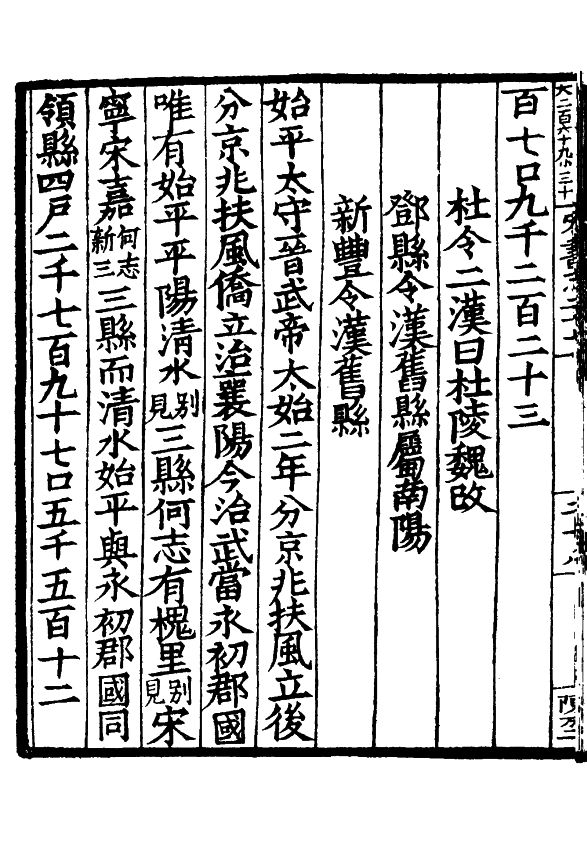 大二百六十九小三十
百七口九千二百二十三
杜令二漢曰杜陵魏改
鄧縣令漢舊縣屬南陽
新豐令漢舊縣
始平太守晉武帝太始二年分京兆扶風立後
分京兆扶風僑立治襄陽今治武當永初郡國
唯有始平平陽清水別見三縣何志有槐里別見宋
寧宋嘉何志新三三縣而清水始平與永初郡國同
領縣四戶二千七百九十七口五千五百十二